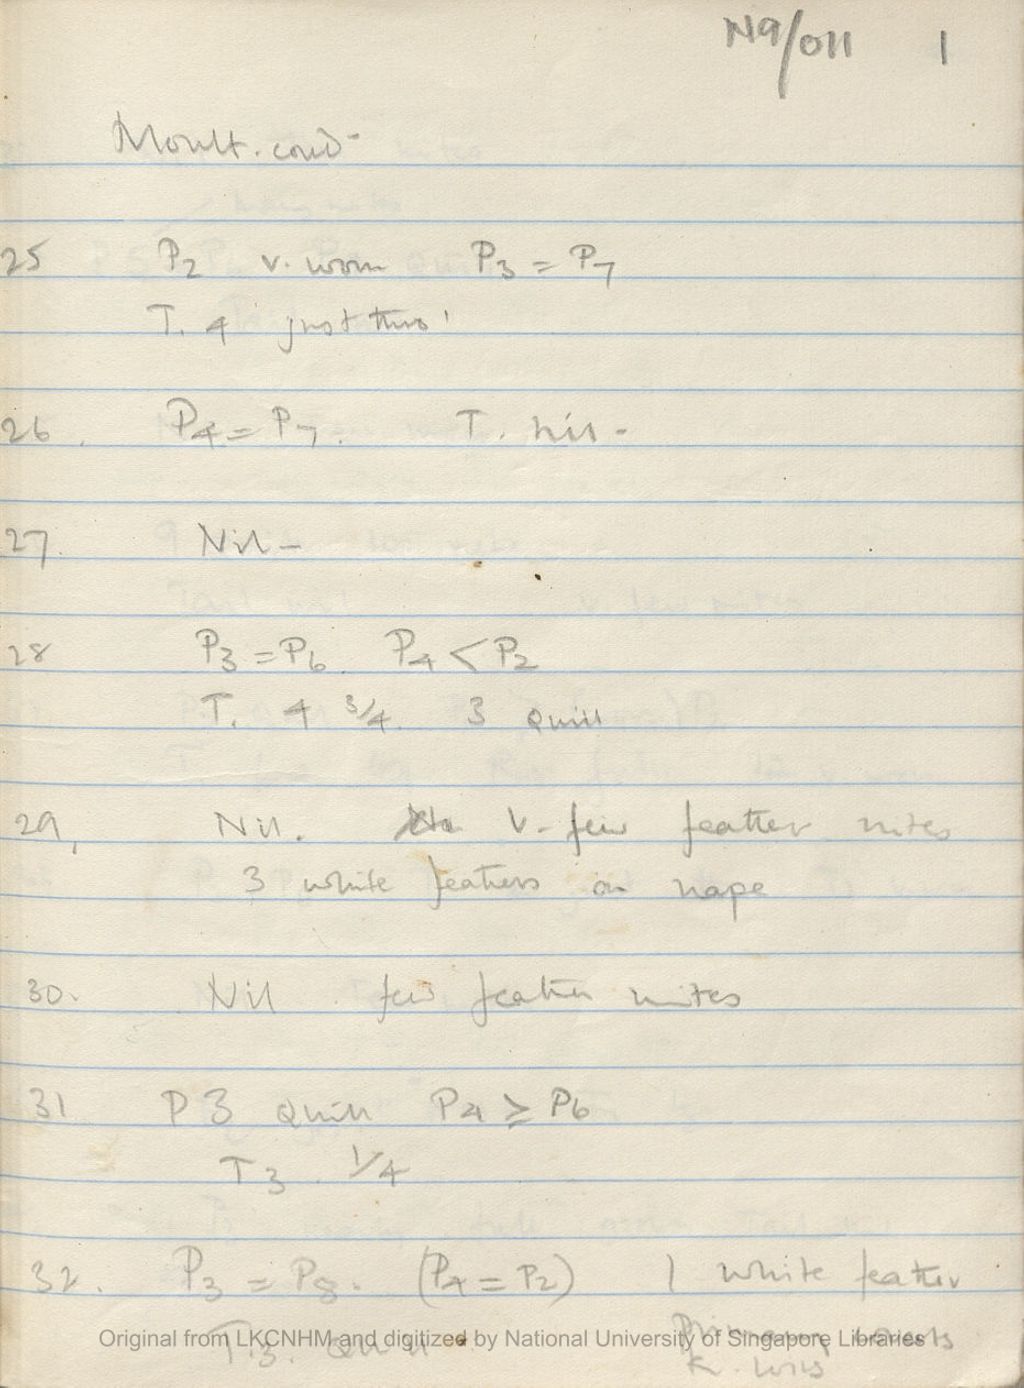 N9/011 1
Moult. cond-
25 P2 v. worn P3 = P7
T. 4 just thro'
26. P4 = P7. T. nil -
27. Nil -
28 P3 = P6. P4 < P2
T. 4 3/4. 3 quill
29, Nil. V. few feather mites
3 white feathers on nape
30. Nil few feather mites
31 P3 quill P4 ≥ P6
T3. 1/4
32. P3 = P8. (P4 = P2) 1 white feather
T.3. quill Primary coverts
Original from LKCNHM and digitized by National University of Singapore Libraries